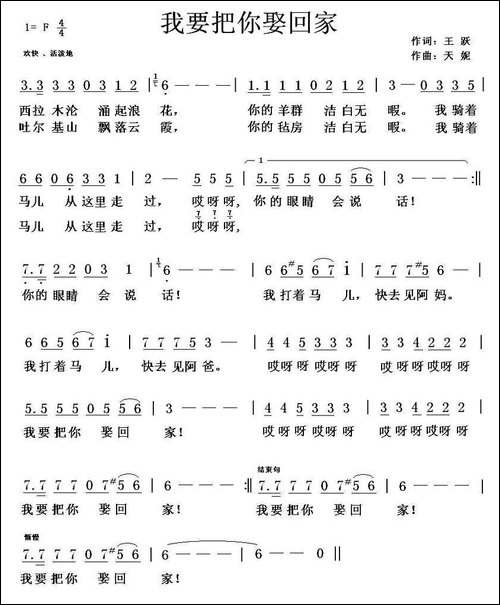 我要把你娶回家
1= F 4/4
作词：王 跃
欢快、活泼地
作曲：天 妮
3.3 3303 0312 | 6 - - - | 1.1 1101 1033 | 2 - - 0335
西拉 木沦 涌起浪 花， 你的羊群 洁白无 暇。我骑着
吐尔 基山 飘落云 霞， 你的毡房 洁白无 暇。我骑着
6606 3331 | 2 - 555 | 5.5 5505 056 | 3 - - - :||
马儿 从这里走 过， 哎呀呀, 你的眼睛 会说 话！
马儿 从这里走 过， 哎呀呀,
7.7 2203 1 | 6 - - - | 66#5 67 i | 777#5 6 -
你的眼睛 会说 话！ 我打着马 儿，快去见阿妈。
66567 i | 77753 - | 3335 2225 | 334222
我打着马 儿， 快去见阿爸。 哎呀呀呀哎呀呀呀 哎呀呀哎呀呀
5.5 5505 556 | 3 - - - | 3335 2225 | 334222 |
我要把你 娶回 家！ 哎呀呀呀哎呀呀呀 哎呀呀哎呀呀
结束句
7.7 7707 07#56 | 6 - - - :|| 7.7 7707 07#56 | 6 - - - |
我要把你 娶回 家！ 我要把你 娶回 家！
慢慢
7.7 7707 07#56 | 6 - - - | 6 - - 0 ||
我要把你 娶回 家！